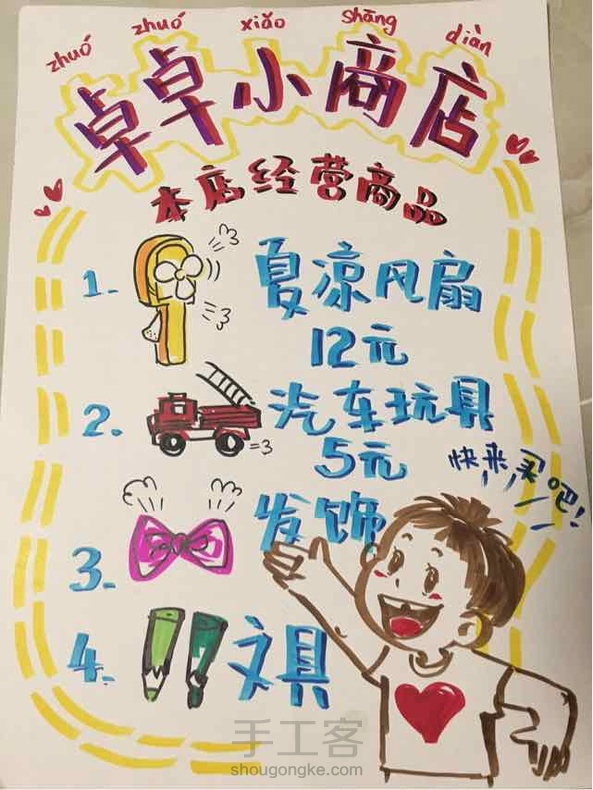 zhuó zhuó xiǎo shāng diàn
卓卓小商店
本店经营商品
1. 夏凉风扇
12元
2. 汽车玩具
5元
快来买吧!
3. 发饰
4. 文具
手工客
shougongke.com